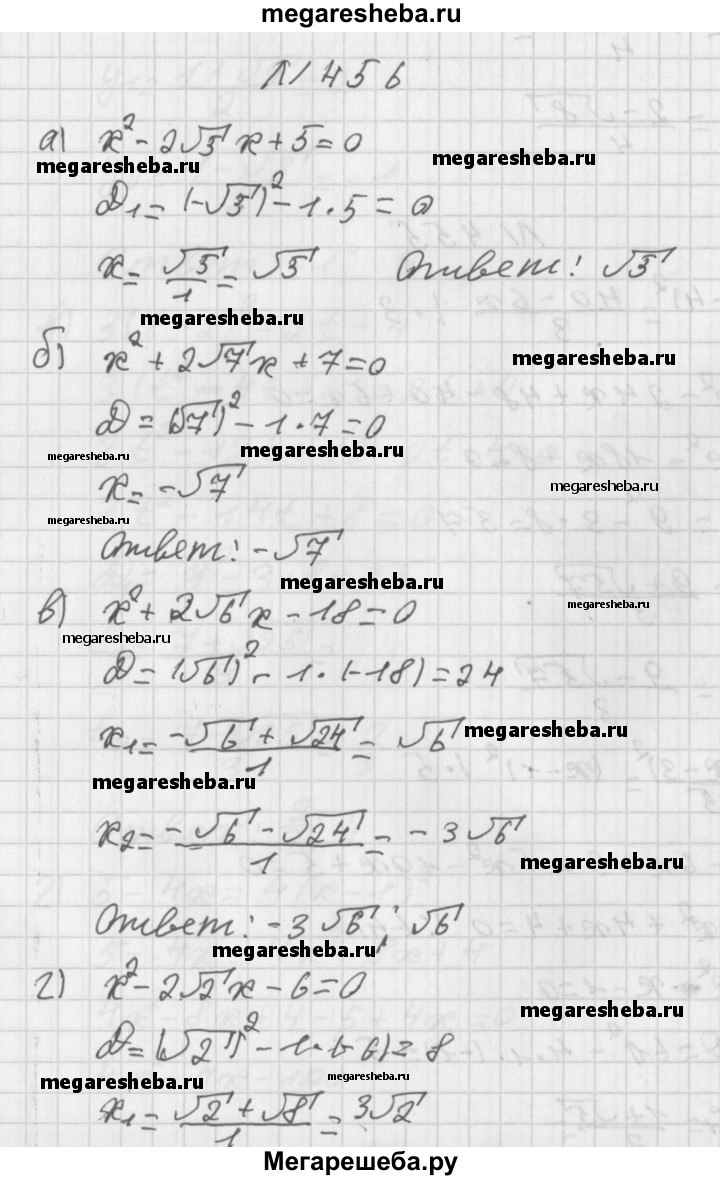 megaresheba.ru
N 456
а) x² - 2√5 x + 5 = 0
megaresheba.ru megaresheba.ru
D₁ = (-√5)² - 1·5 = 0
x = √5/1 = √5 Ответ: √5
megaresheba.ru
б) x² + 2√7 x + 7 = 0 megaresheba.ru
D = (√7)² - 1·7 = 0
megaresheba.ru megaresheba.ru
x = -√7 megaresheba.ru
megaresheba.ru
Ответ: -√7
megaresheba.ru
в) x² + 2√6 x - 18 = 0 megaresheba.ru
megaresheba.ru
D = (√6)² - 1·(-18) = 24
x₁ = (-√6 + √24)/1 = √6 megaresheba.ru
megaresheba.ru
x₂ = (-√6 - √24)/1 = -3√6
megaresheba.ru
Ответ: -3√6; √6
megaresheba.ru
г) x² - 2√2 x - 6 = 0
megaresheba.ru
D = (√2)² - 1·(-6) = 8
megaresheba.ru megaresheba.ru megaresheba.ru
x₁ = (√2 + √8)/1 = 3√2
Мегарешеба.ру